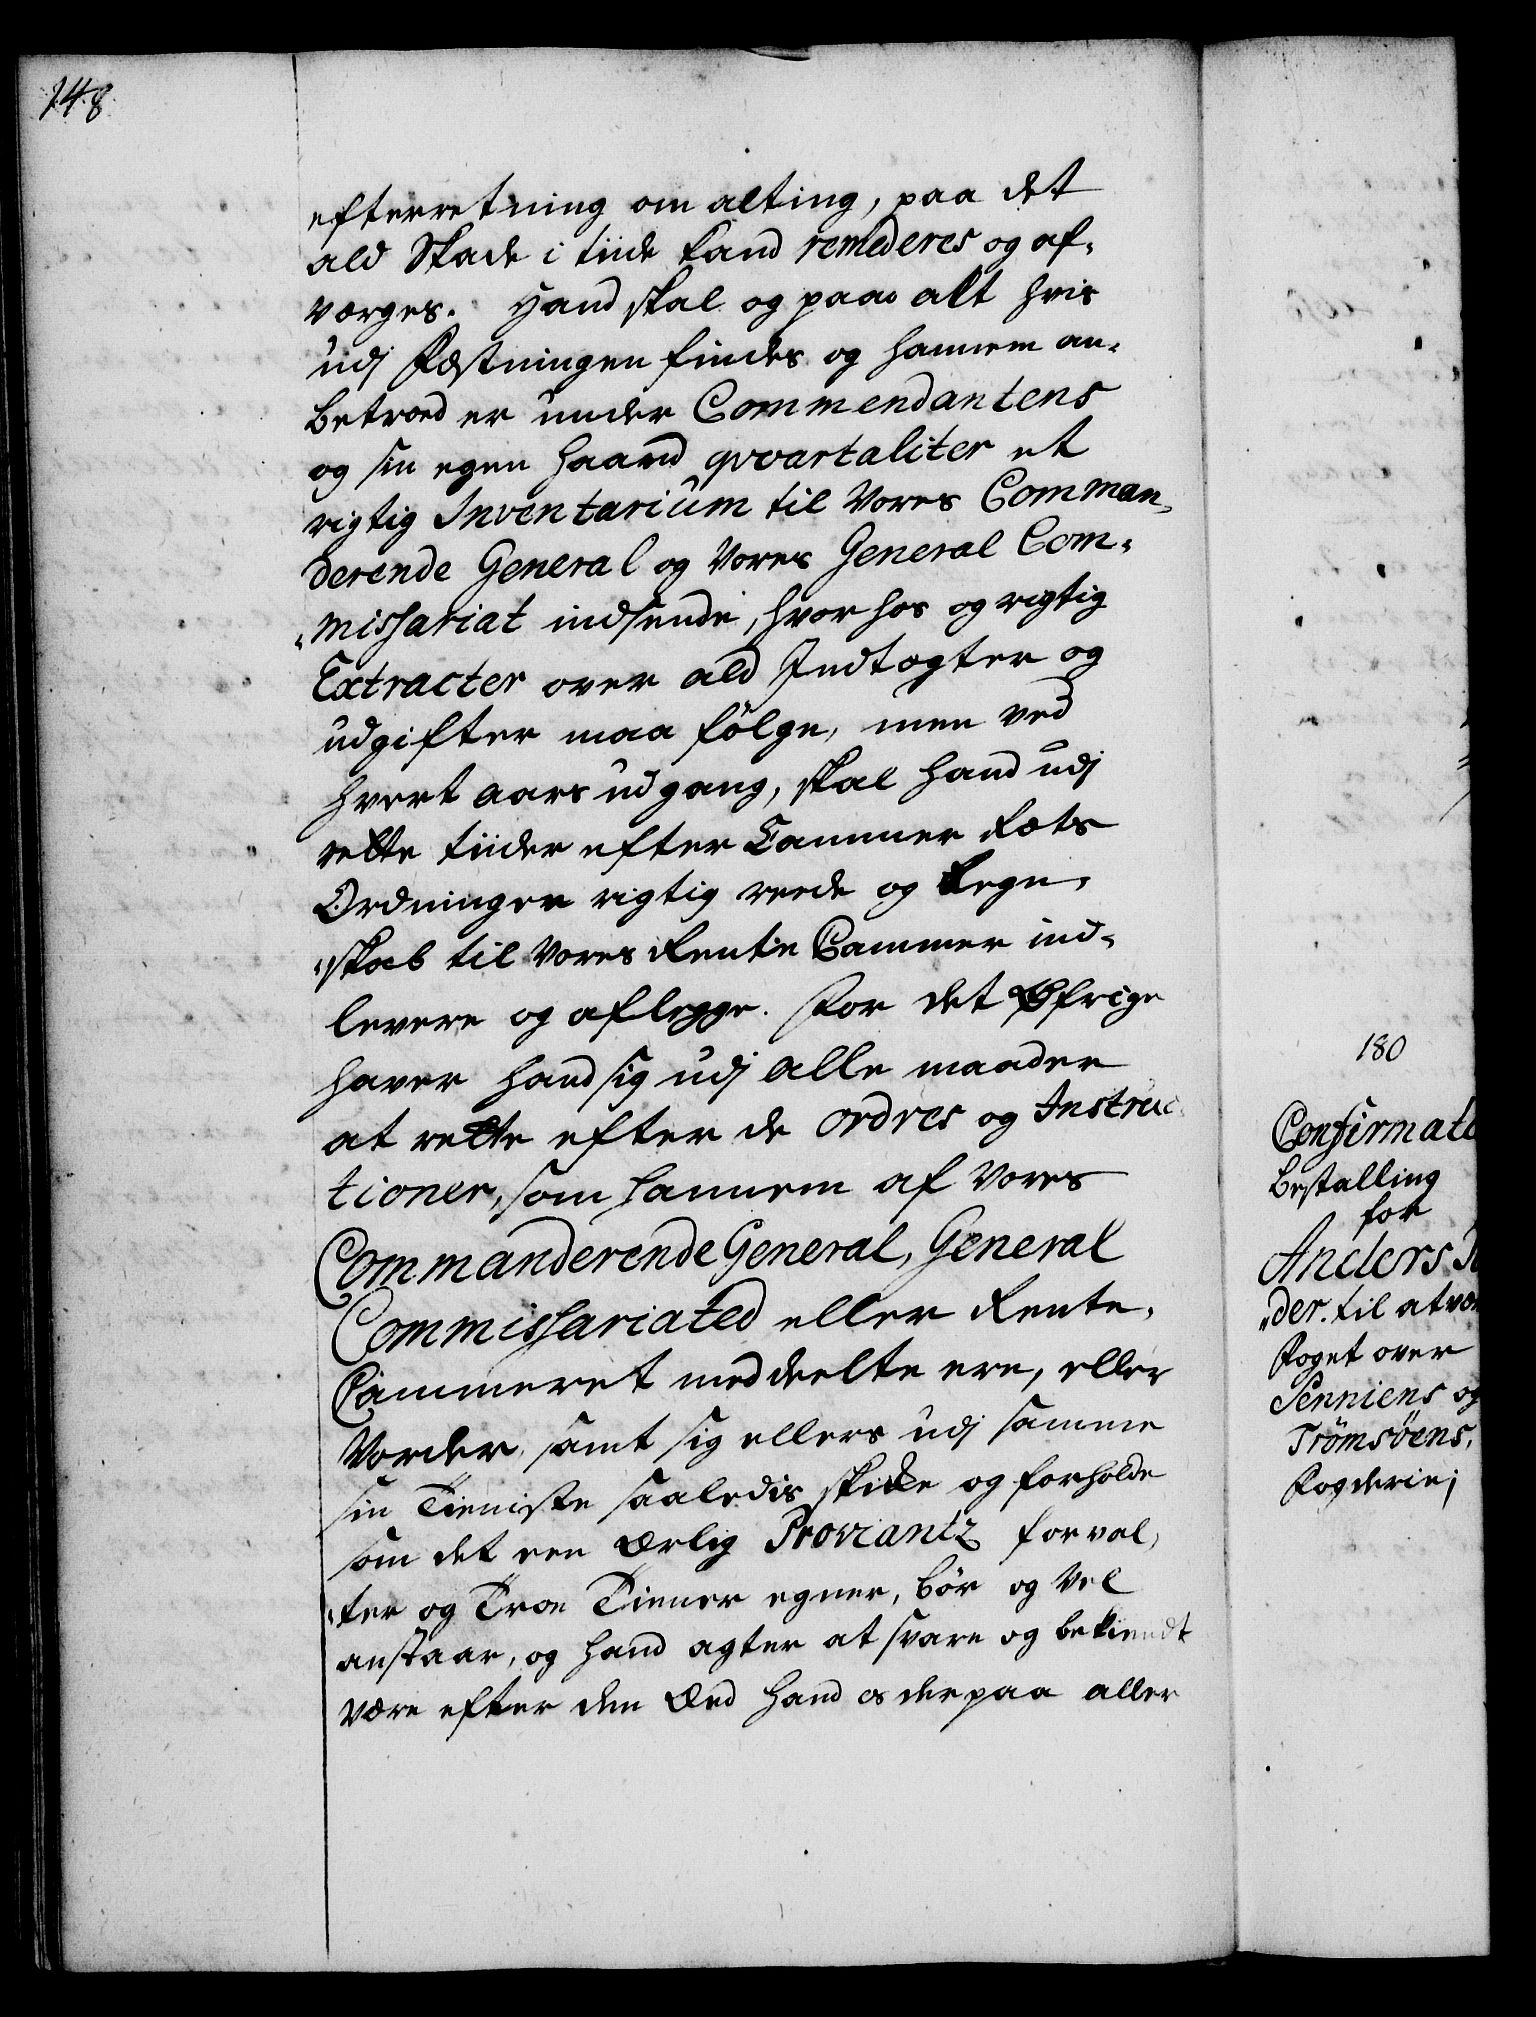 148
efterretning om alting, paa det
ald Skade i tiide kand remederes og af-
værges. Hand skal og paa alt hvis
udj Fæstningen findes og hannem an-
betroed er under Commendantens
og sin egen haand qvartaliter et
rigtig Inventarium til Vores Comman-
derende General og Vores General Com-
missariat indsende, hvor hos og rigtig
Extracter over ald Indtægter og
udgifter maa følge, men ved
hvert aars udgang, skal hand udj
rette tiider efter Cammer Rets
Ordninger rigtig reede og Regn-
skab til Vores Rente Cammer ind-
levere og aflegge. For det Øfrige
haver hand sig udj alle maader
at rette efter de ordres og Instruc-
tioner, som hannem af Vores
Commanderende General, General
Commissariated eller Rente-
Cammeret meddeelte ere, eller
Vorder, samt sig ellers udj samme
sin Tieniste saaledis skikke og forholde
som det een Ærlig Proviantz forval-
ter og Troe Tiener egner, bør og vel
anstaar, og hand agter at svare og bekiendt
være efter den Æed hand os derpaa aller
180
Confirmati
Bestalling
for
Anders
der. til at væ
Foget over
Senniens og
Trömsöens
Fogderie;